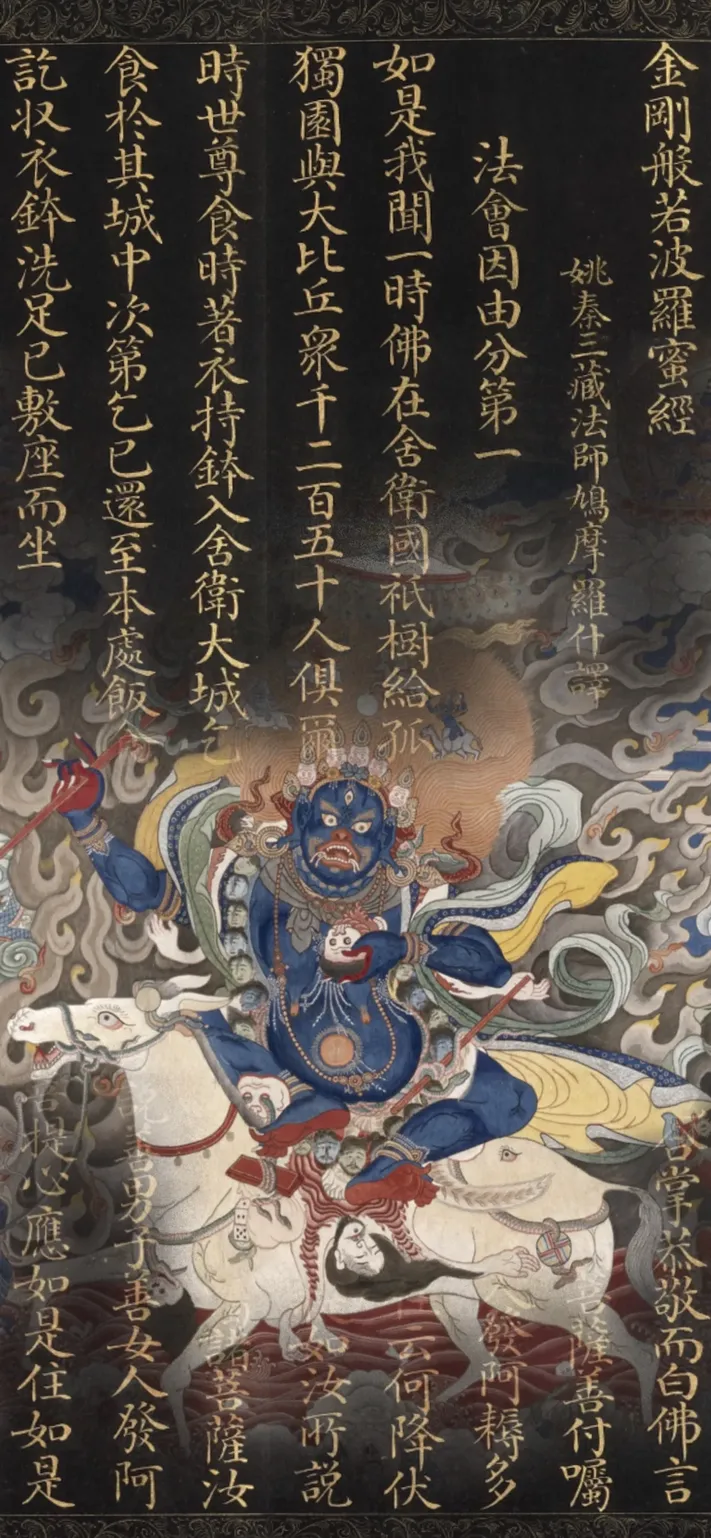 金剛般若波羅蜜經
姚秦三藏法師鳩摩羅什譯
法會因由分第一
如是我聞一時佛在舍衛國祇樹給孤
獨園與大比丘衆千二百五十人俱爾
時世尊食時著衣持鉢入舍衛大城乞
食於其城中次第乞已還至本處飯
訖収衣鉢洗足已敷座而坐
合掌恭敬而白佛言
菩薩善付囑
發阿耨多
云何降伏
如汝所説
諸菩薩汝
説善男子善女人發阿
菩提心應如是住如是